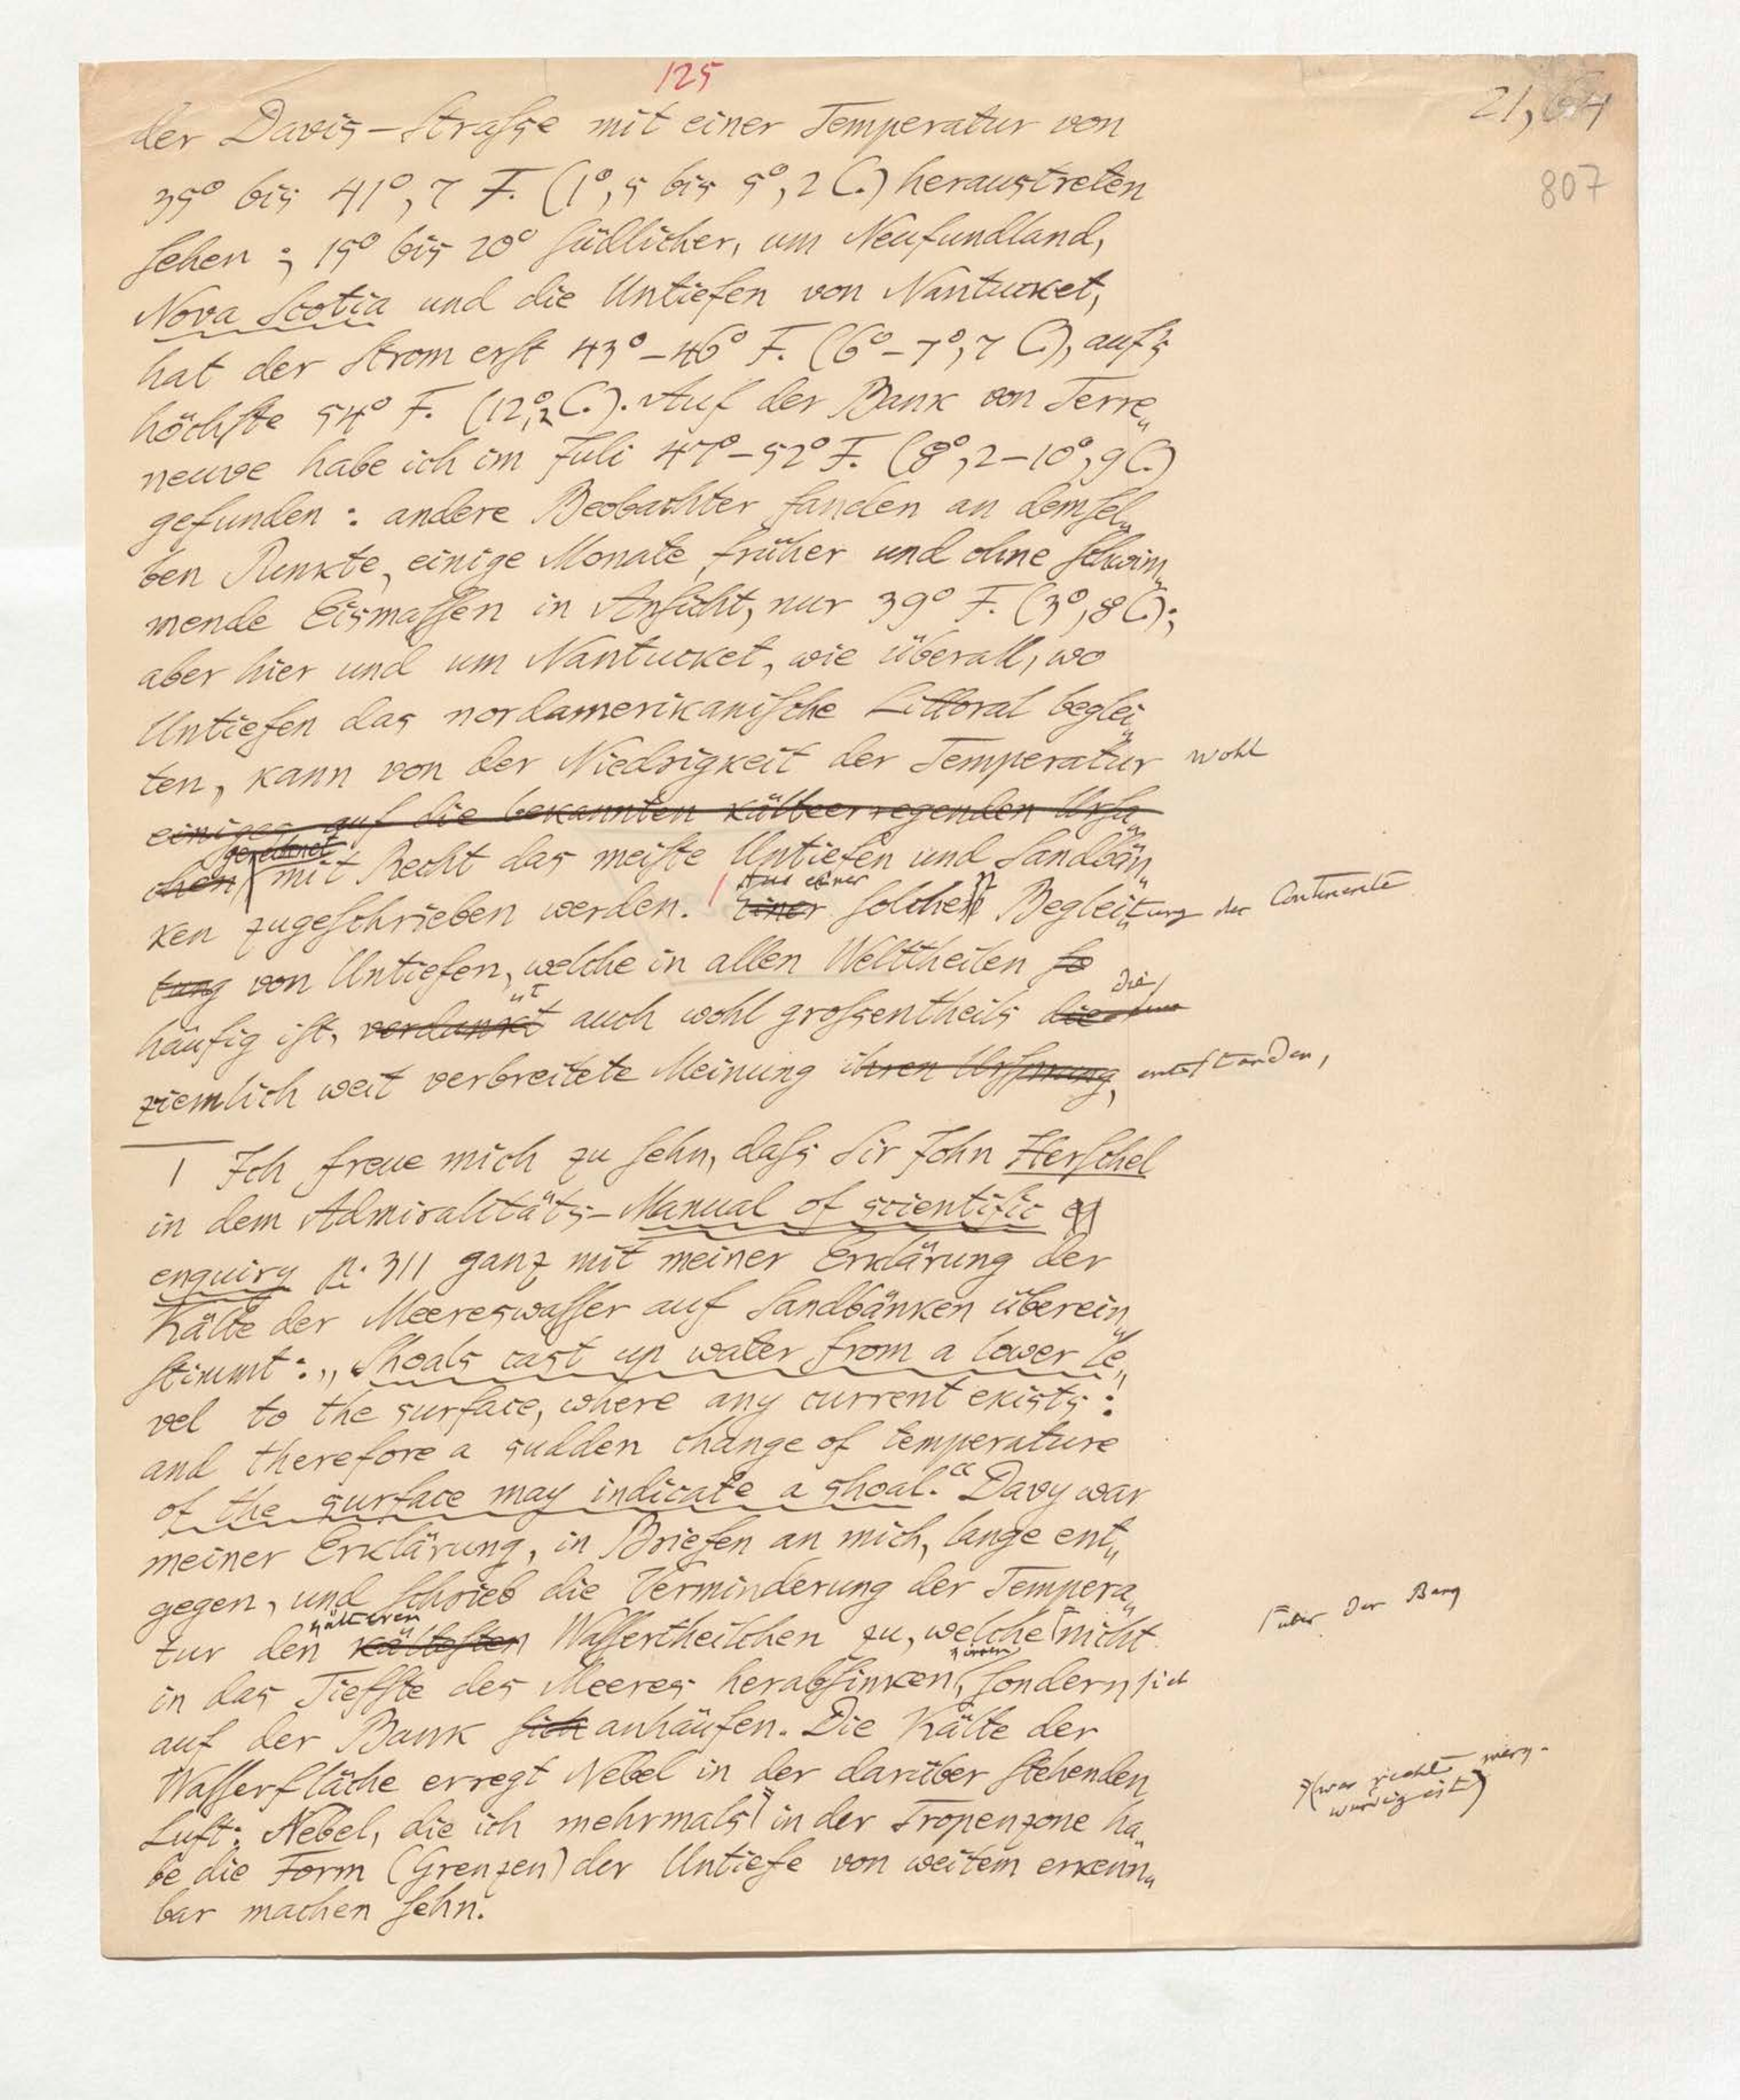 125
21,
807
der Davis-Straſse mit einer Temperatur von
35° bis 41°,7 F. (1°,5 bis 5°,2 C.) heraustreten
ſehen; 15° bis 20° ſüdlicher, um Neufundland,
Nova Scotia und die Untiefen von Nantucket,
hat der Strom erſt 43°–46° F. (6°–7°,7 C.), auf's
höchſte 54° F. (12°,2 C.). Auf der Bank von Terre„
neuve habe ich im Juli 47°–52° F. (8°,2–10°,9 C.)
gefunden: andere Beobachter fanden an demſel„
ben Punkte, einige Monate früher und ohne ſchwim„
mende Eismaſſen in Anſicht, nur 39° F. (3°,8 C.);
aber hier und um Nantucket, wie überall, wo
Untiefen das nordamerikaniſche Littoral beglei„
ten, kann von der Niedrigkeit der Temperatur wohl
einiges auf die bekannten kälteerregenden Urſa„
gerechnet
chen mit Recht das meiſte Untiefen und Sandbän„
Aus einer
ken zugeſchrieben werden. Einer ſolchen Begleitung der Continente
tung von Untiefen, welche in allen Welttheilen ſo
die
häufig iſt, verdankt auch wohl groſsentheils die
ziemlich weit verbreitete Meinung ihren Urſprung, entſtanden,
1 Ich freue mich zu ſehn, daſs Sir John Herſchel
in dem Admiralitäts-Manual of scientific
enquiry p. 311 ganz mit meiner Erklärung der
Kälte der Meereswaſſer auf Sandbänken überein„
ſtimmt: „Shoals cast up water from a lower le„
vel to the surface, where any current exists:
and therefore a sudden change of temperature
of the surface may indicate a shoal.“ Davy war
meiner Erklärung, in Briefen an mich, lange ent„
gegen, und ſchrieb die Verminderung der Tempera„
kälteren
tur den kälteſten Waſſertheilchen zu, welche nicht
über der Bank
in das Tiefſte des Meeres herabſinken, ſondern sich
auf der Bank ſich anhäufen. Die Kälte der
Waſſerfläche erregt Nebel in der darüber ſtehenden
Luft: Nebel, die ich mehrmals in der Tropenzone ha„
(was recht merk-
würdig ist)
be die Form (Grenzen) der Untiefe von weitem erkenn„
bar machen ſehn.